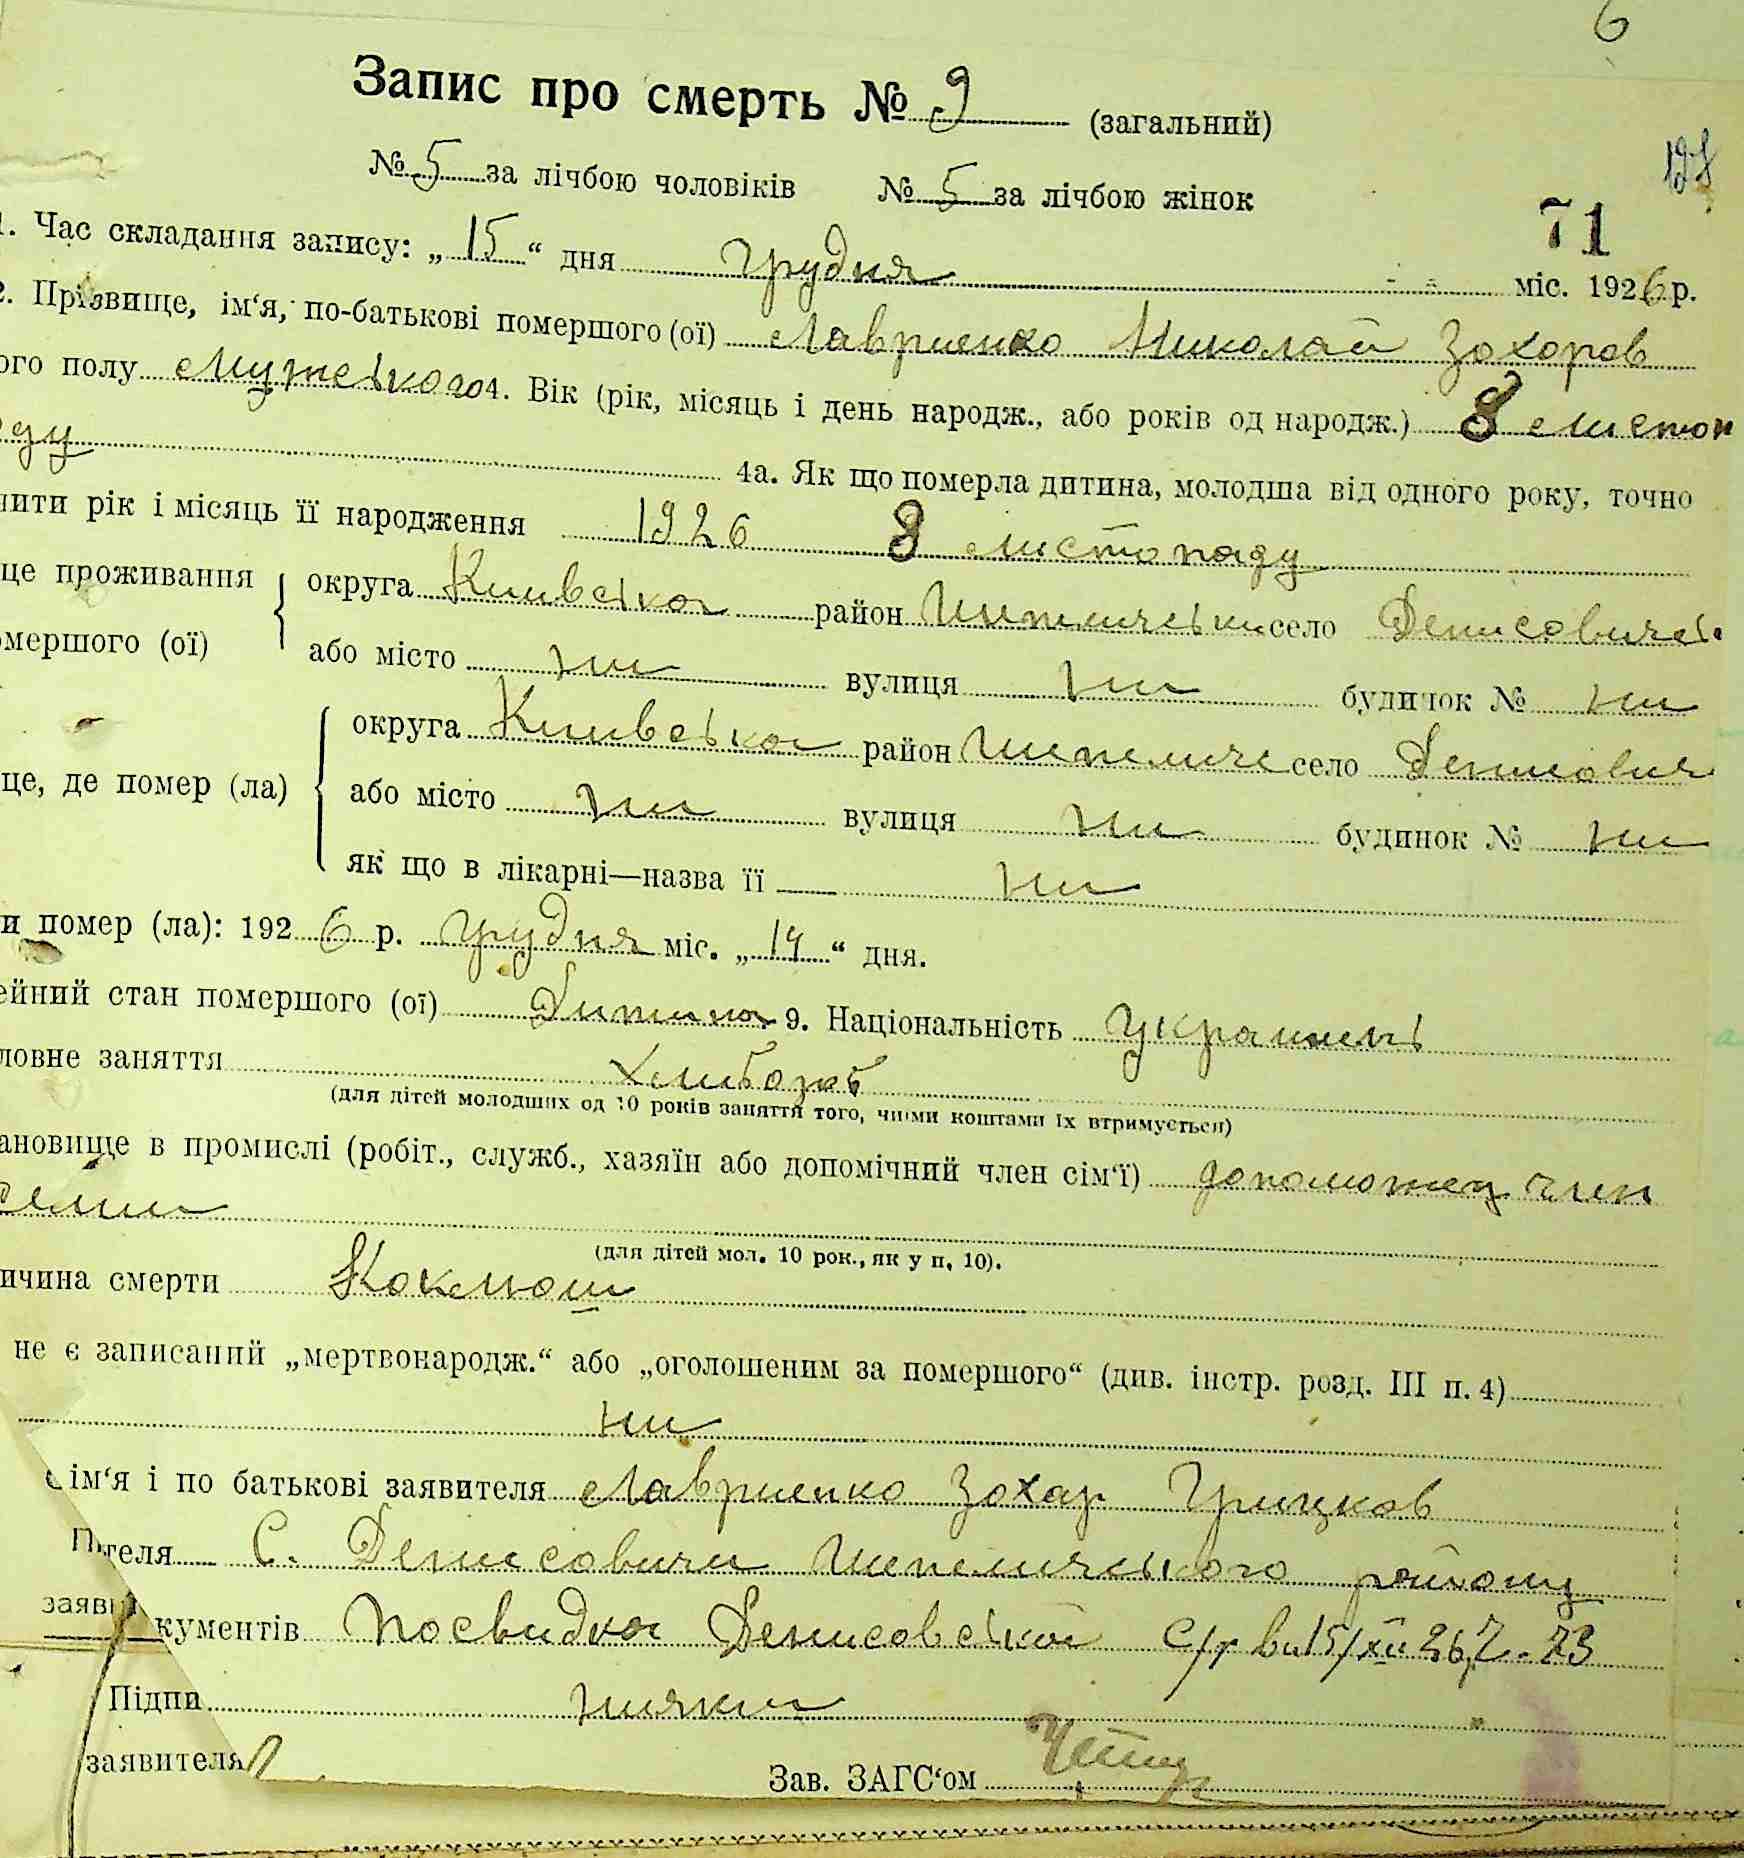 6
Запис про смерть № 9 (загальний)
№ 5 за лічбою чоловіків № 5 за лічбою жінок
71
1. Час складання запису: „15“ дня Грудня міс. 1926 р.
2. Прізвище, ім‘я, по-батькові помершого (ої) Лавриенко Николай Зохоров
ого полу Мужського 4. Вік (рік, місяць і день народж., або років од народж.) 8 листоп
аду 4а. Як що померла дитина, молодша від одного року, точно
чити рік і місяць її народження 1926 8 листопаду
це проживання округа Киивська район Шепелицьки село Денисовичі
омершого (ої) або місто ни вулиця ни будинок № ни
округа Киивська район Шепеличс село Денисович
це, де помер (ла) або місто ни вулиця ни будинок № ни
як що в лікарні—назва її ни
и помер (ла): 1926 р. Грудня міс. „14“ дня.
ейний стан помершого (ої) Дитина 9. Національність Украинець
ловне заняття Хлибороб
(для дітей молодших од 10 років заняття того, чиїми коштами їх втримується)
ановище в промислі (робіт., служб., хазяїн або допомічний член сім‘ї) допоможец член
семии
(для дітей мол. 10 рок., як у п. 10).
ичина смерти Коклюш
не є записаний „мертвонародж.“ або „оголошеним за помершого“ (див. інстр. розд. III п. 4)
ни
ім‘я і по батькові заявителя Лавриенко Зохар Грицков
теля С. Денисовичи Шепеличського району
заяви
кументів Посвидка Денисовської С/р ви 15/XII 26 73
Підпи нияких
заявителя
Зав. ЗАГС‘ом